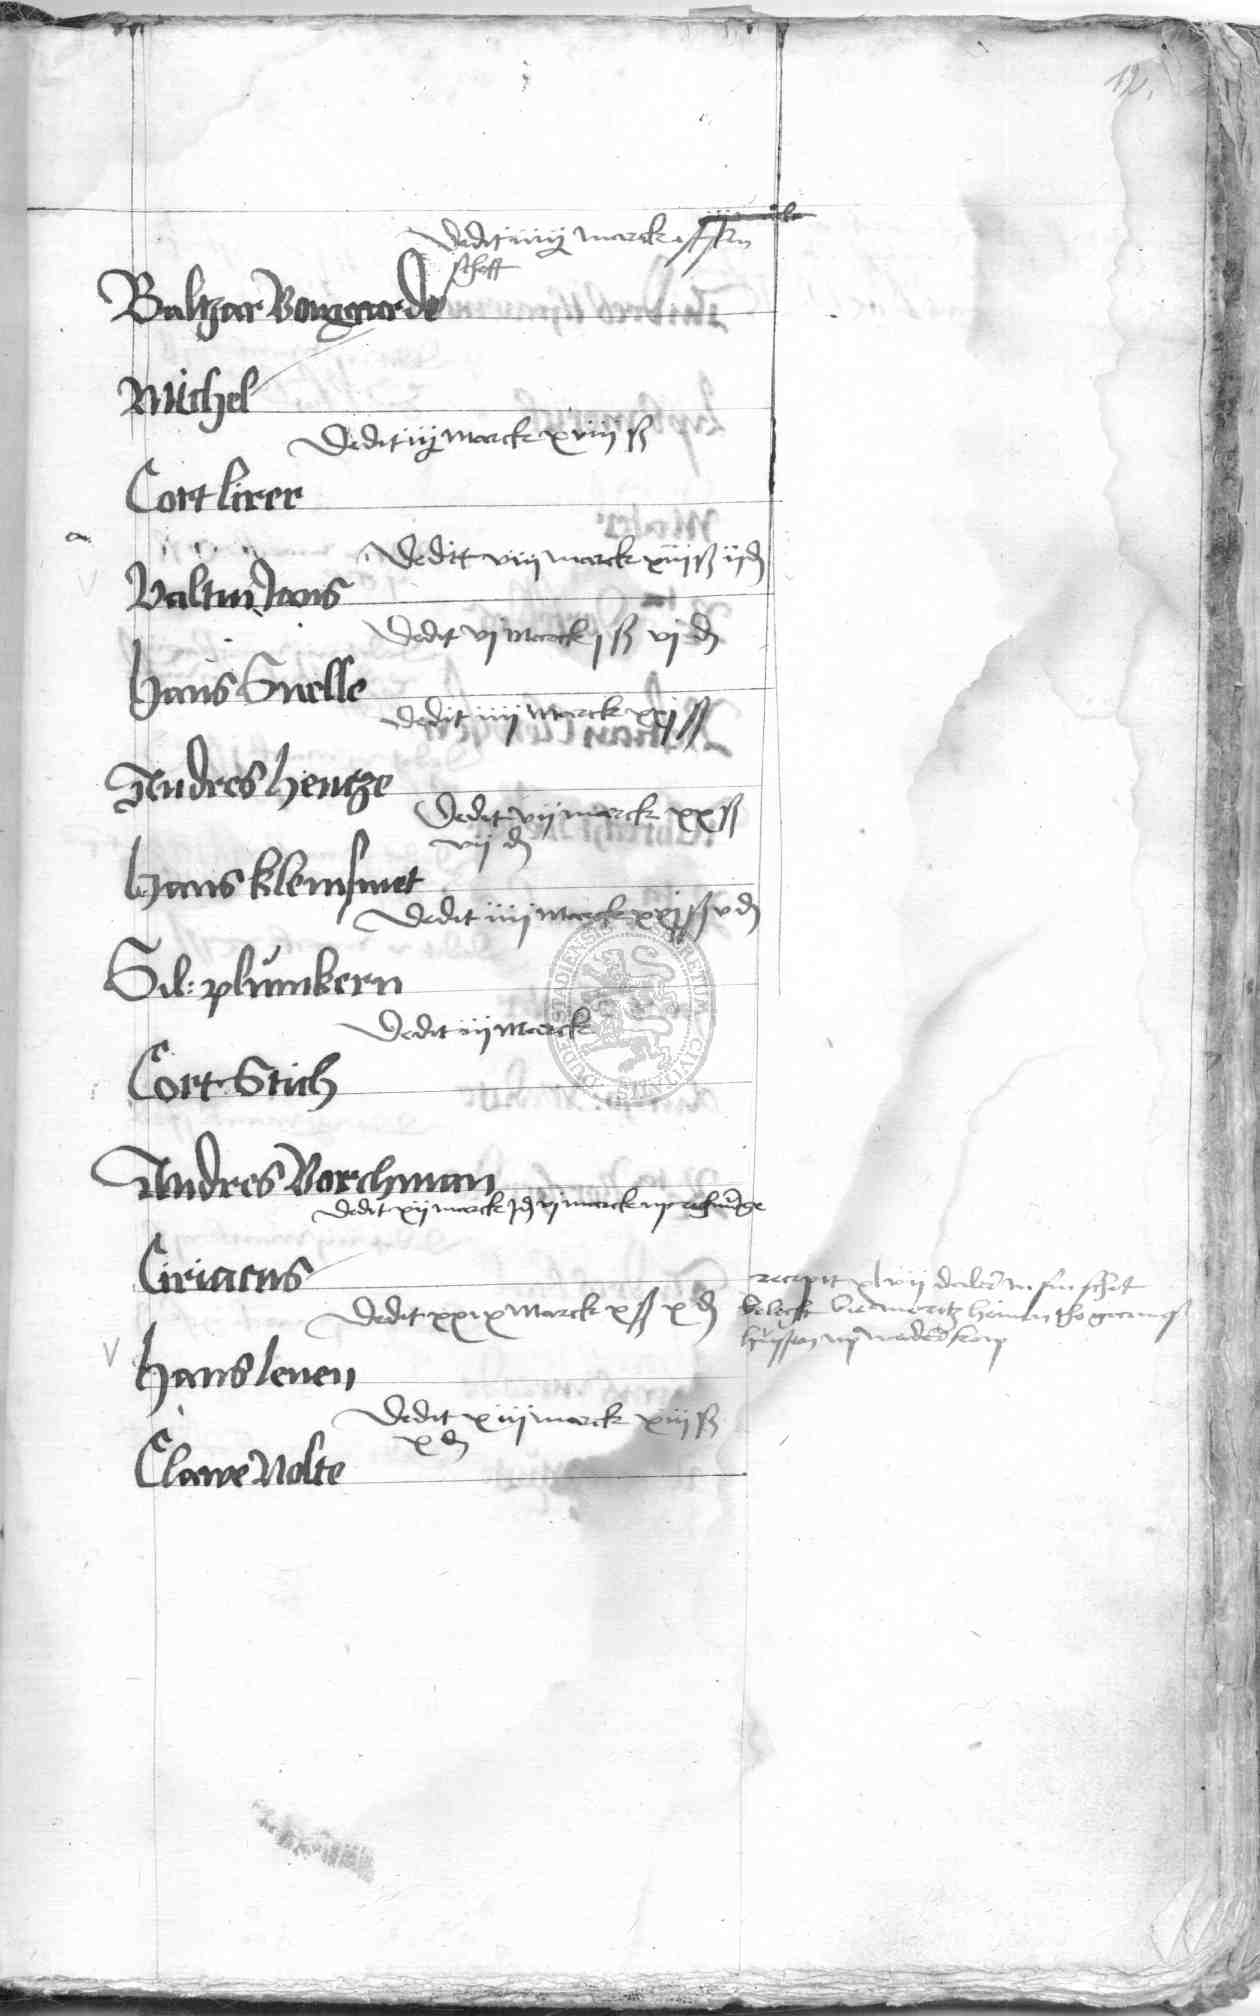 12.
Dedit iiij marck
schoff
Baltzar Bomgarde
Michel
Dedit iij marck xviij ß
Cort lirer
Dedit viij marck xiij ß ij d
Valtin Jans
Dedit vj marck j ß vj d
Hans Snelle
Dedit iiij marck xxj ß
Andres Hentze
Dedit vij marck xx ß
vij d
Hans klensmet
Dedit iiij marck xxj ß v d
Sil: plümkern
Dedit iij marck
Cort Stich
Andres Borchman
Dedit xij marck vj marck up
Ciriacus
recepit xlvij daler in sin schot
Dedit xxix marck x ß x d
Hans leuen
Dedit xiij marck xiij ß
x d
Clawe Nolte